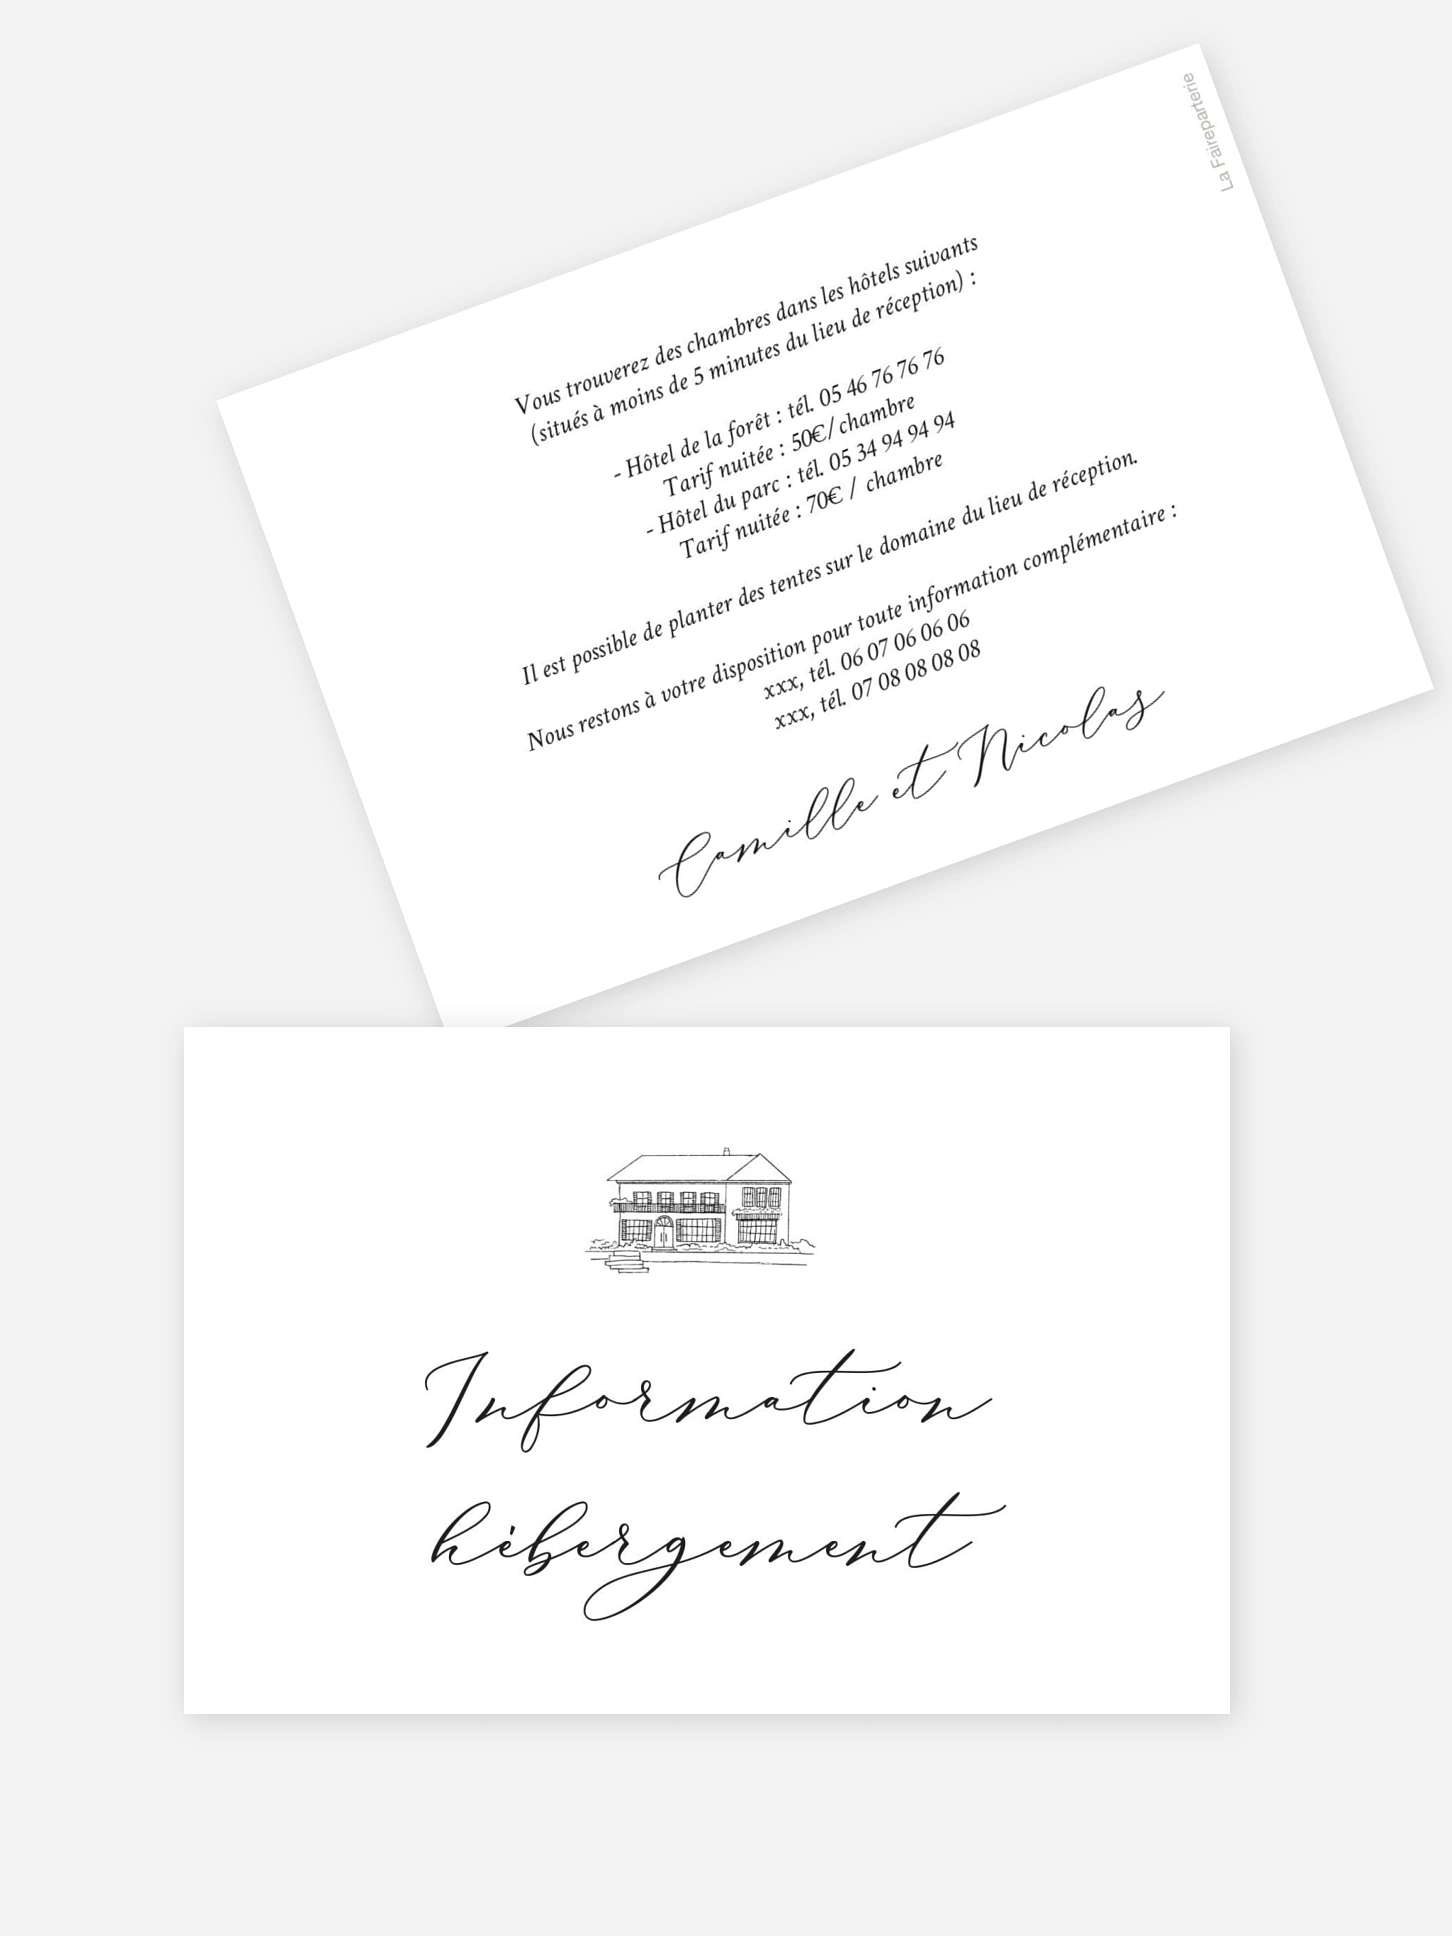 La Faireparterie
Vous trouverez des chambres dans les hôtels suivants
(situés à moins de 5 minutes du lieu de réception) :
- Hôtel de la forêt : tél. 05 46 76 76 76
Tarif nuitée : 50€/ chambre
- Hôtel du parc : tél. 05 34 94 94 94
Tarif nuitée : 70€ / chambre
Il est possible de planter des tentes sur le domaine du lieu de réception.
Nous restons à votre disposition pour toute information complémentaire :
xxx, tél. 06 07 06 06 06
xxx, tél. 07 08 08 08 08
Camille et Nicolas
Information
hébergement